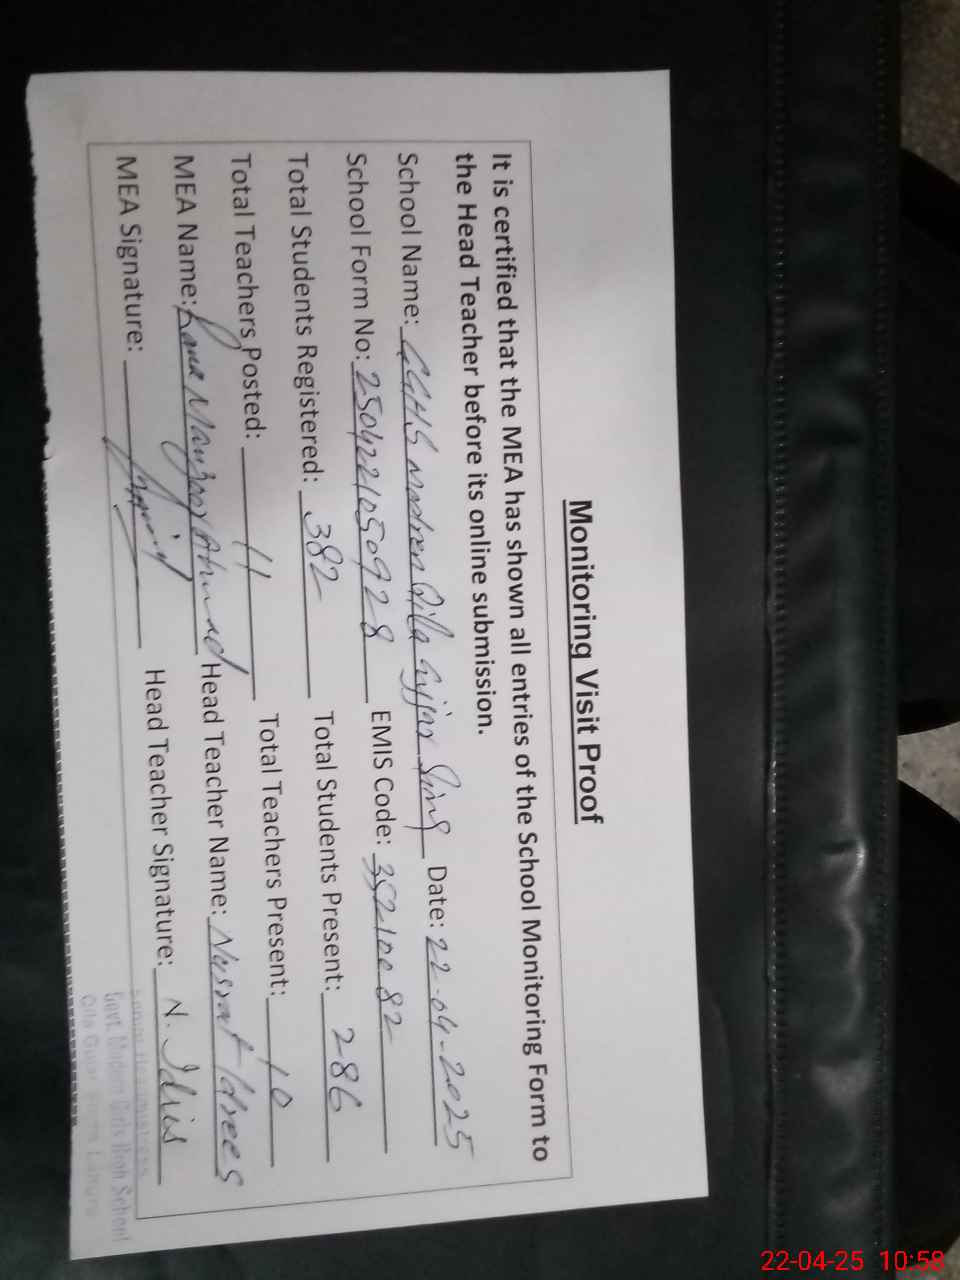 Monitoring Visit Proof
It is certified that the MEA has shown all entries of the School Monitoring Form to
the Head Teacher before its online submission.
School Name: GGHS Modren Qilla Gujjar Sing Date: 22-04-2025
School Form No: 2504221050928 EMIS Code: 35210082
Total Students Registered: 382 Total Students Present: 286
Total Teachers Posted: 11 Total Teachers Present: 10
MEA Name: Rana Ahmad Head Teacher Name: Nusrat Idrees
MEA Signature: Head Teacher Signature: N. Idris
Senior Headmistress
Govt. Modern Girls High School
Qila Gujar Singh, Lahore
22-04-25 10:58